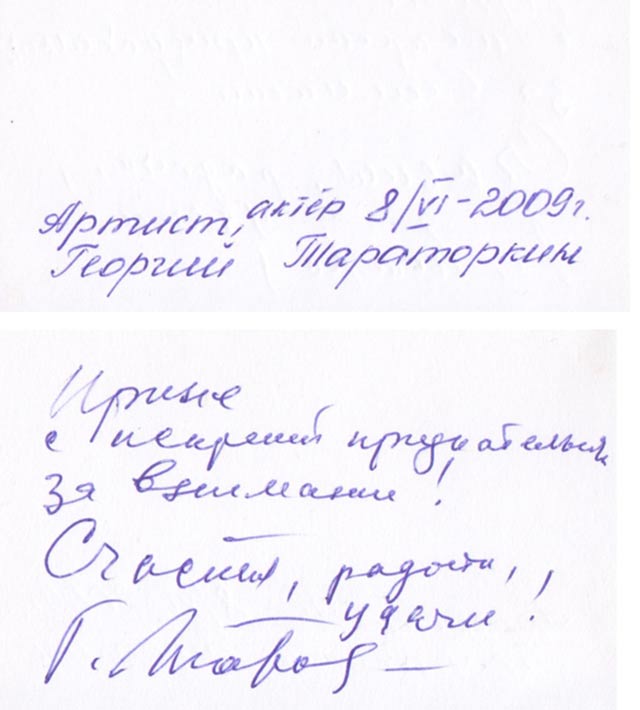 Артист, актёр 8/VI-2009г.
Георгий Тараторкин
Ирине
с искренней признательностью
за внимание!
Счастья, радости,
удачи!
Г. Тарат